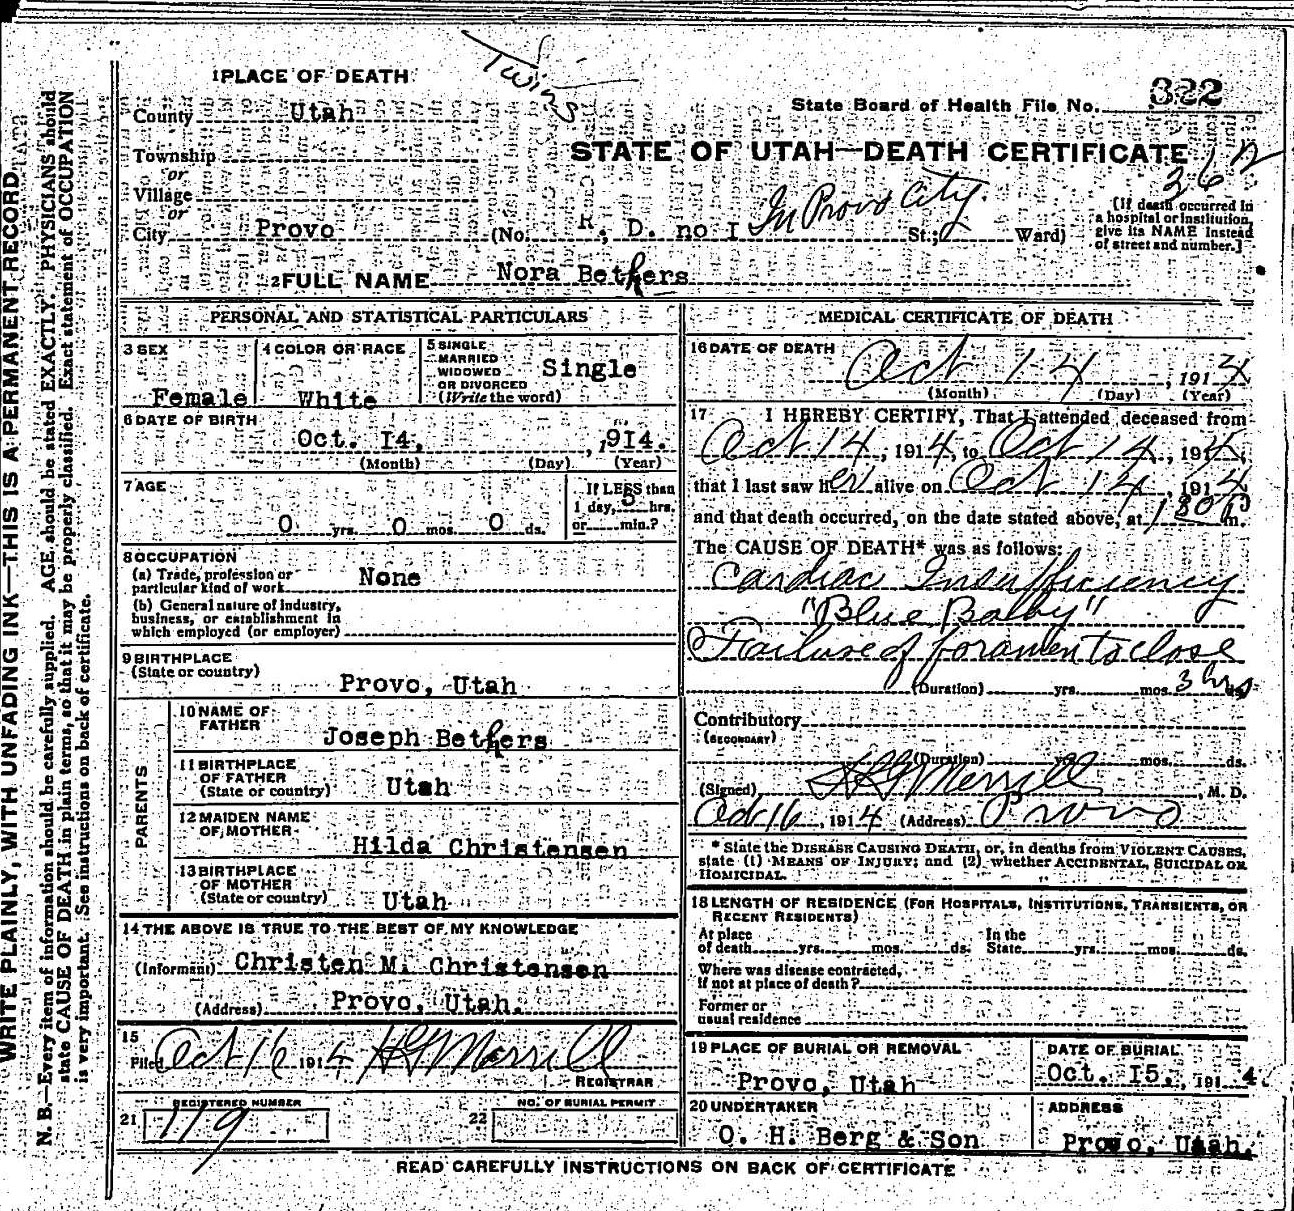 Twins
1 PLACE OF DEATH
State Board of Health File No. 322
County Utah
STATE OF UTAH—DEATH CERTIFICATE
Township
or
Village
or
City Provo (No. R. D. no I In Provo City. St.; Ward)
[If death occurred in
a hospital or institution,
give its NAME instead
of street and number.]
2 FULL NAME Nora Bethers
PERSONAL AND STATISTICAL PARTICULARS
3 SEX
Female
4 COLOR OR RACE
White
5 SINGLE
MARRIED
WIDOWED
OR DIVORCED
(Write the word)
Single
6 DATE OF BIRTH
Oct. I4, 1914.
(Month) (Day) (Year)
7 AGE
0 yrs. 0 mos. 0 ds.
If LESS than
1 day, 3 hrs.
or min.?
8 OCCUPATION
(a) Trade, profession or
particular kind of work None
(b) General nature of industry,
business, or establishment in
which employed (or employer)
9 BIRTHPLACE
(State or country)
Provo, Utah
PARENTS
10 NAME OF
FATHER
Joseph Bethers
11 BIRTHPLACE
OF FATHER
(State or country) Utah
12 MAIDEN NAME
OF MOTHER
Hilda Christensen
13 BIRTHPLACE
OF MOTHER
(State or country) Utah
14 THE ABOVE IS TRUE TO THE BEST OF MY KNOWLEDGE
(Informant) Christen M. Christensen
(Address) Provo, Utah.
15
Filed Oct 16 1914 H G Merrill
REGISTRAR
21 REGISTERED NUMBER
119
22 NO. OF BURIAL PERMIT
MEDICAL CERTIFICATE OF DEATH
16 DATE OF DEATH
Oct 14, 1914
(Month) (Day) (Year)
17 I HEREBY CERTIFY, That I attended deceased from
Oct 14, 1914, to Oct 14, 1914,
that I last saw her alive on Oct 14, 1914
and that death occurred, on the date stated above, at 1 30 P m.
The CAUSE OF DEATH* was as follows:
Cardiac Insufficiency
"Blue Baby"
Failure of foramen to close
(Duration) yrs. mos. 3 hrs ds.
Contributory
(SECONDARY)
(Duration) yrs. mos. ds.
(Signed) H G Merrill, M. D.
Oct 16, 1914 (Address) Provo
* State the DISEASE CAUSING DEATH, or, in deaths from VIOLENT CAUSES,
state (1) MEANS OF INJURY; and (2) whether ACCIDENTAL, SUICIDAL OR
HOMICIDAL.
18 LENGTH OF RESIDENCE (FOR HOSPITALS, INSTITUTIONS, TRANSIENTS, OR
RECENT RESIDENTS)
At place In the
of death yrs. mos. ds. State yrs. mos. ds.
Where was disease contracted,
if not at place of death?
Former or
usual residence
19 PLACE OF BURIAL OR REMOVAL
Provo, Utah
DATE OF BURIAL
Oct. I5, 1914.
20 UNDERTAKER
O. H. Berg & Son
ADDRESS
Provo, Utah.
READ CAREFULLY INSTRUCTIONS ON BACK OF CERTIFICATE
WRITE PLAINLY, WITH UNFADING INK—THIS IS A PERMANENT RECORD
N. B.—Every item of information should be carefully supplied. AGE should be stated EXACTLY. PHYSICIANS should
state CAUSE OF DEATH in plain terms, so that it may be properly classified. Exact statement of OCCUPATION
is very important. See instructions on back of certificate.